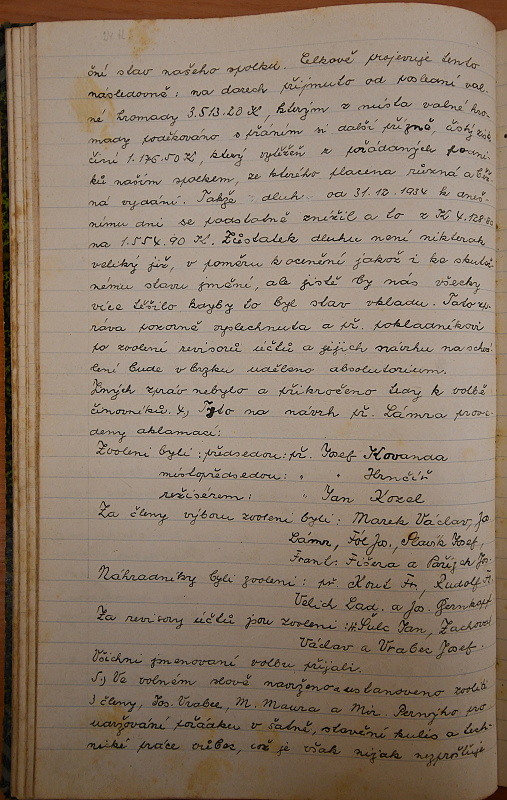 ční stav našeho spolku. Celkově projevuje tento
následovně: na darech přijmuto od poslední val-
né hromady 3.513.20 K, kterým z místa valné hro-
mady poděkováno s přáním si další přízně, čistý zisk
činí 1.176.50 K, který vytěžen z pořádaných podni-
ků naším spolkem, ze kterého placena různá a běž-
ná vydání. Takže dluh od 31.12.1934 k dneš-
nímu dni se podstatně znížil a to z Kč 4.128
na 1.554.90 K. Zůstatek dluhu není nikterak
veliký již, v poměru k ocenění jakož i ke skuteč-
nému stavu jmění, ale jistě by nás všecky
více těšilo kdyby to byl stav vkladu. Tato zp-
ráva pozorně vyslechnuta a př. pokladníkovi
po zvolení revisorů účtů a jejich návrhu na schvá-
lení bude v brzku uděleno absolutorium.
Jiných zpráv nebylo a přikročeno tedy k volbě
činovníků. 4.) Tyto na návrh př. Lámra prove-
deny aklamací:
Zvoleni byli: předsedou: př. Josef Kovanda
místopředsedou: " " Hrnčíř
režiserem: " Jan Kozel
Za členy výboru zvoleni byli: Marek Václav, Jos.
Lámr, Fól Jos., Slavík Josef,
Frant. Fišera a Pařízek Jos.
Náhradníky byli zvoleni: př. Kout Fr., Rudolf Fr.
Velich Lad. a Jos. Gernkopf
Za revisory účtů jsou zvoleni: př. Šulc Jan, Zachoval
Václav a Vrabec Josef.
Všichni jmenovaní volbu přijali.
5.) Ve volném slově navrženo a ustanoveno zvoliti
3 členy, Jos. Vrabec, M. Maura a Mir. Pernýho pro
udržování pořádku v šatně, stavění kulis a tech-
nické práce vůbec, což je však nijak nezprošťuje